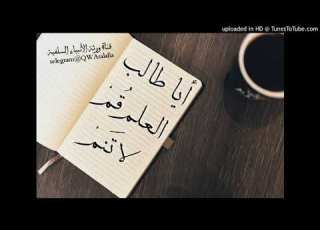 uploaded in HD @ TunesToTube.com
قناة ورثة الأنبياء السلفية
telegram:@QWAsalafia
أيا طالب
العلم قُمْ
لا تَنَمْ